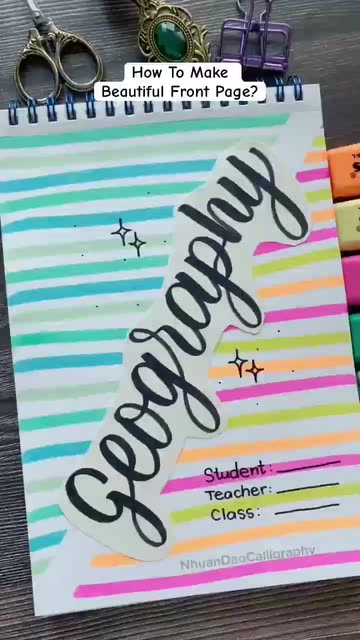 How To Make
Beautiful Front Page?
Geography
Student:
Teacher:
Class:
NhuanDaoCalligraphy